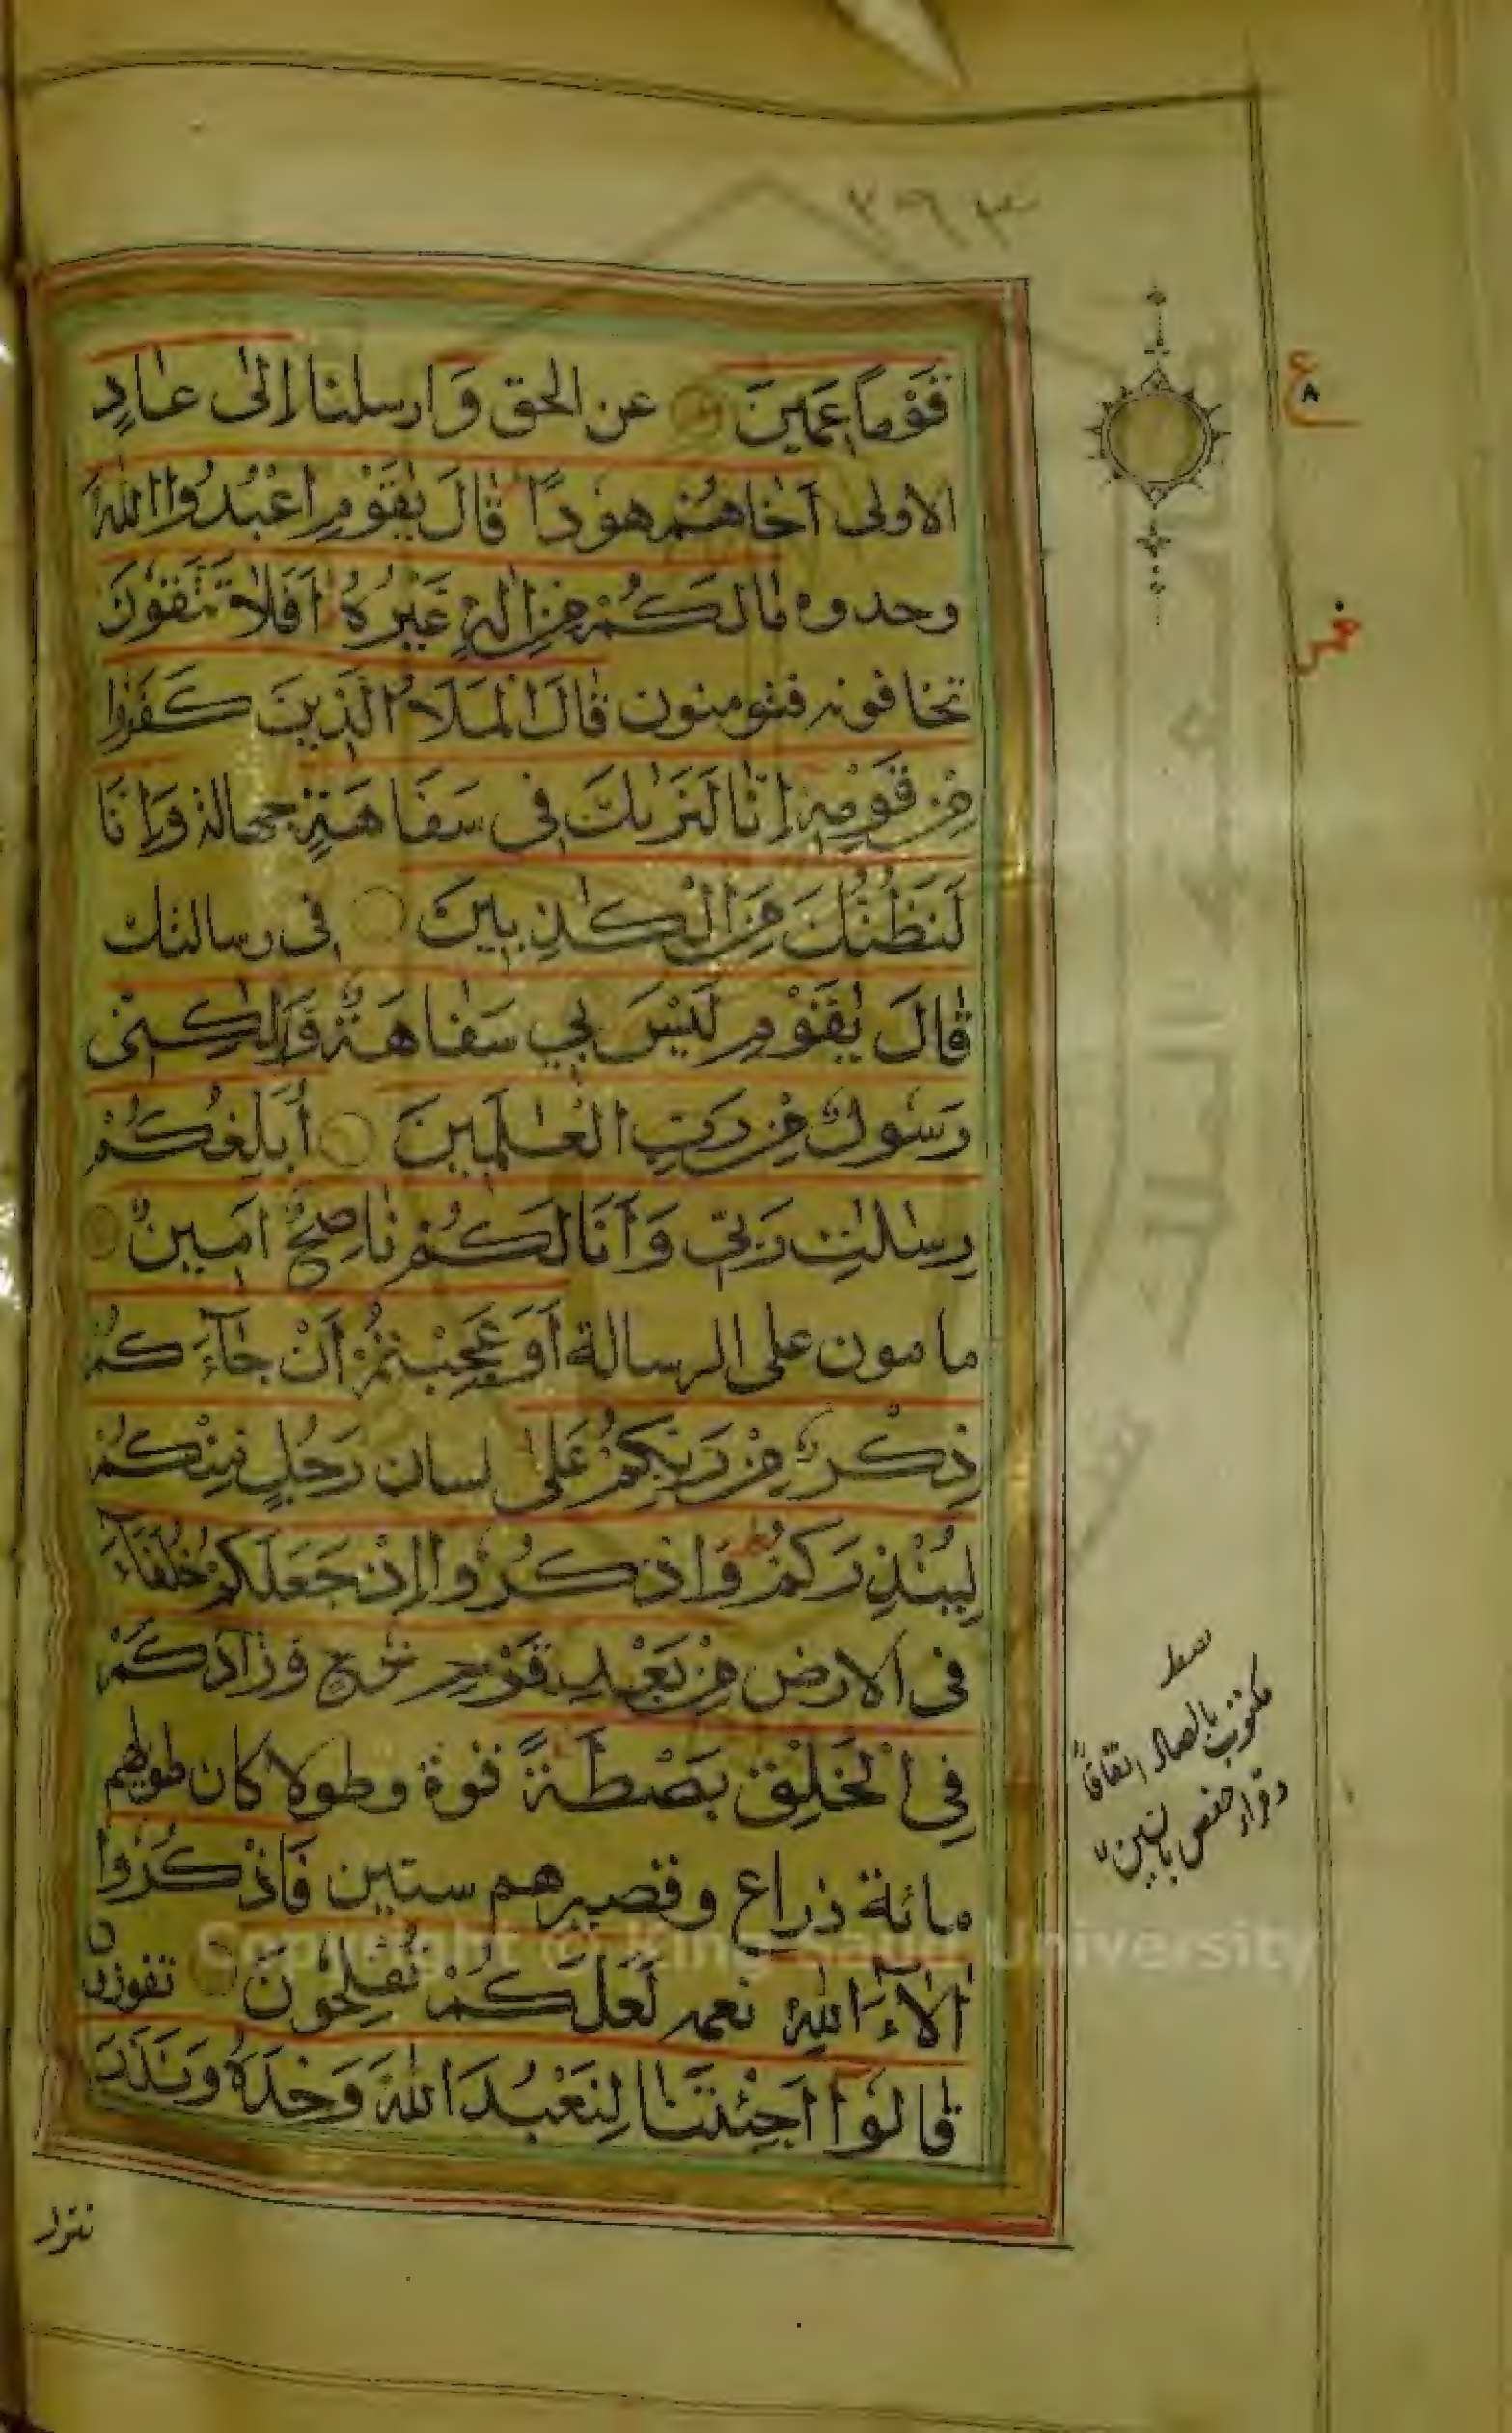 قَوْمًا عَمِينَ عن الحق وَارسلنا اِلٰى عَادٍ
الاولى اَخَاهُمْ هُودًا قَالَ يٰقَوْمِ اعْبُدُوا اللّٰهَ
وحدوه مَا لَكُمْ مِنْ اِلٰهٍ غَيْرُهُ اَفَلَا تَتَّقُونَ
تخافونه فتومنون قَالَ الْمَلَاُ الَّذِينَ كَفَرُوا
مِنْ قَوْمِهِ اِنَّا لَنَرٰىكَ فِى سَفَاهَةٍ جهالة وَاِنَّا
لَنَظُنُّكَ مِنَ الْكٰذِبِينَ فى رسالتك
قَالَ يٰقَوْمِ لَيْسَ بِي سَفَاهَةٌ وَلٰكِنِّى
رَسُولٌ مِنْ رَبِّ الْعٰلَمِينَ اُبَلِّغُكُمْ
رِسٰلٰتِ رَبِّى وَاَنَا لَكُمْ نَاصِحٌ اَمِينٌ
مامون على الرسالة اَوَعَجِبْتُمْ اَنْ جَآءَكُمْ
ذِكْرٌ مِنْ رَبِّكُمْ عَلٰى لسان رَجُلٍ مِنْكُمْ
لِيُنْذِرَكُمْ وَاذْكُرُوا اِذْ جَعَلَكُمْ خُلَفَآءَ
فى الارض مِنْ بَعْدِ قَوْمِ نُوحٍ وَزَادَكُمْ
فِى الْخَلْقِ بَصْطَةً قوة وطولا كان طويلهم
مائة ذراع وقصيرهم ستين فَاذْكُرُوا
اٰلَآءَ اللّٰهِ نعمه لَعَلَّكُمْ تُفْلِحُونَ تفوزون
قَالُوا اَجِئْتَنَا لِنَعْبُدَ اللّٰهَ وَحْدَهُ وَنَذَرَ
ع
٨
مكتوب بالصاد اتفاقاً
وقرأ حفص بالسين
Copyright © King Saud University